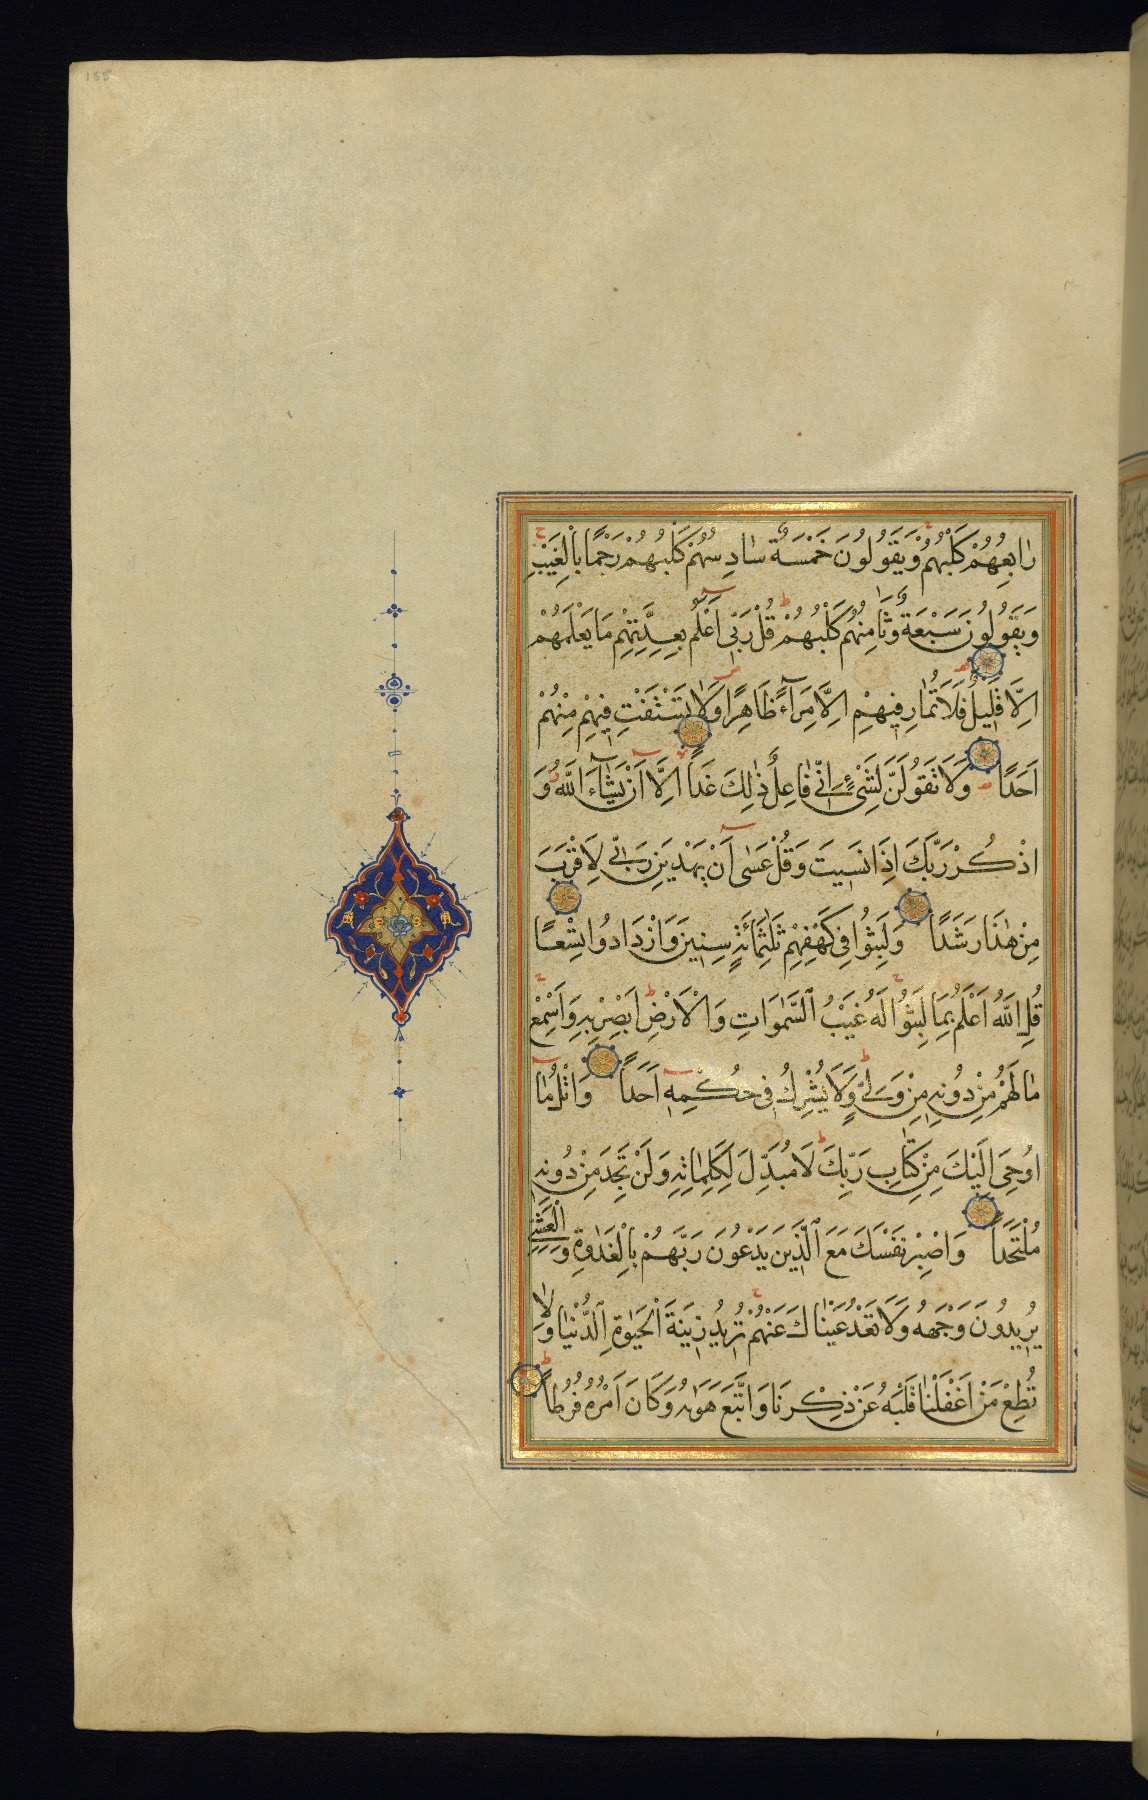 155
رَابِعُهُمْ كَلْبُهُمْ وَيَقُولُونَ خَمْسَةٌ سَادِسُهُمْ كَلْبُهُمْ رَجْمًا بِالْغَيْبِ
وَيَقُولُونَ سَبْعَةٌ وَثَامِنُهُمْ كَلْبُهُمْ قُلْ رَبّٖي اَعْلَمُ بِعِدَّتِهِمْ مَا يَعْلَمُهُمْ
اِلَّا قَلٖيلٌ فَلَا تُمَارِ فٖيهِمْ اِلَّا مِرَآءً ظَاهِرًا وَلَا تَسْتَفْتِ فٖيهِمْ مِنْهُمْ
اَحَدًا وَلَا تَقُولَنَّ لِشَیْءٍ اِنّٖي فَاعِلٌ ذٰلِكَ غَدًا اِلَّا اَنْ يَشَآءَ اللّٰهُ وَ
اذْكُرْ رَبَّكَ اِذَا نَسٖيتَ وَقُلْ عَسٰى اَنْ يَهْدِيَنِ رَبّٖي لِاَقْرَبَ
مِنْ هٰذَا رَشَدًا وَلَبِثُوا فٖي كَهْفِهِمْ ثَلٰثَمِائَةٍ سِنٖينَ وَازْدَادُوا تِسْعًا
قُلِ اللّٰهُ اَعْلَمُ بِمَا لَبِثُوا لَهُ غَيْبُ السَّمٰوَاتِ وَالْاَرْضِ اَبْصِرْ بِهِ وَاَسْمِعْ
مَا لَهُمْ مِنْ دُونِهِ مِنْ وَلِيٍّ وَلَا يُشْرِكُ فٖي حُكْمِهٖ اَحَدًا وَاتْلُ مَا
اُوحِيَ اِلَيْكَ مِنْ كِتَابِ رَبِّكَ لَا مُبَدِّلَ لِكَلِمَاتِهِ وَلَنْ تَجِدَ مِنْ دُونِهِ
مُلْتَحَدًا وَاصْبِرْ نَفْسَكَ مَعَ الَّذٖينَ يَدْعُونَ رَبَّهُمْ بِالْغَدٰوةِ وَالْعَشِيِّ
يُرٖيدُونَ وَجْهَهُ وَلَا تَعْدُ عَيْنَاكَ عَنْهُمْ تُرٖيدُ زٖينَةَ الْحَيٰوةِ الدُّنْيَا وَلَا
تُطِعْ مَنْ اَغْفَلْنَا قَلْبَهُ عَنْ ذِكْرِنَا وَاتَّبَعَ هَوٰيهُ وَكَانَ اَمْرُهُ فُرُطًا